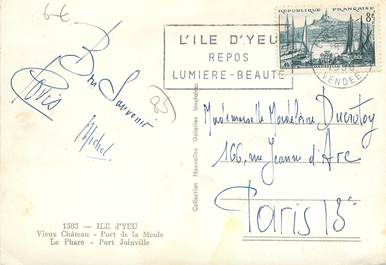 6€
L'ILE D'YEU
REPOS
LUMIERE-BEAUTÉ
REPUBLIQUE FRANÇAISE
8F
VENDEE
Bon Souvenir
Michel
Mademoiselle Madeleine Ducrotoy
166, rue Jeanne d'Arc
Paris 13e
Collection Nouvelles Galeries
1383 — ILE d'YEU
Vieux Château - Port de la Meule
Le Phare - Port Joinville